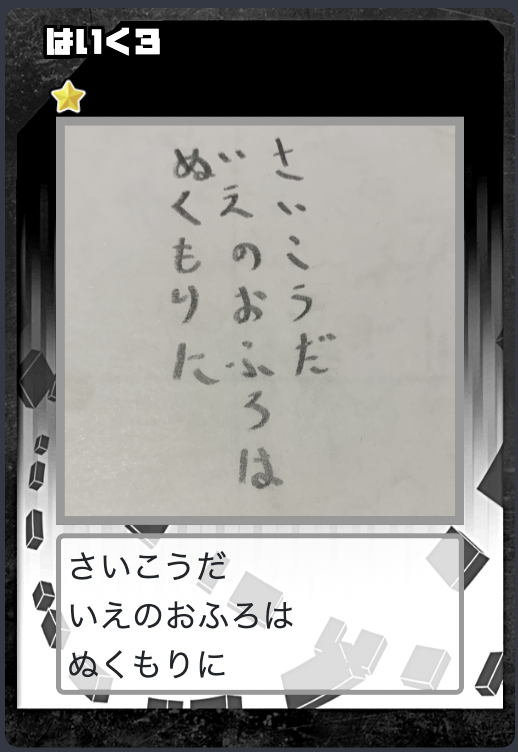 はいく3
さいこうだ
いえのおふろは
ぬくもりに
さいこうだ
いえのおふろは
ぬくもりに